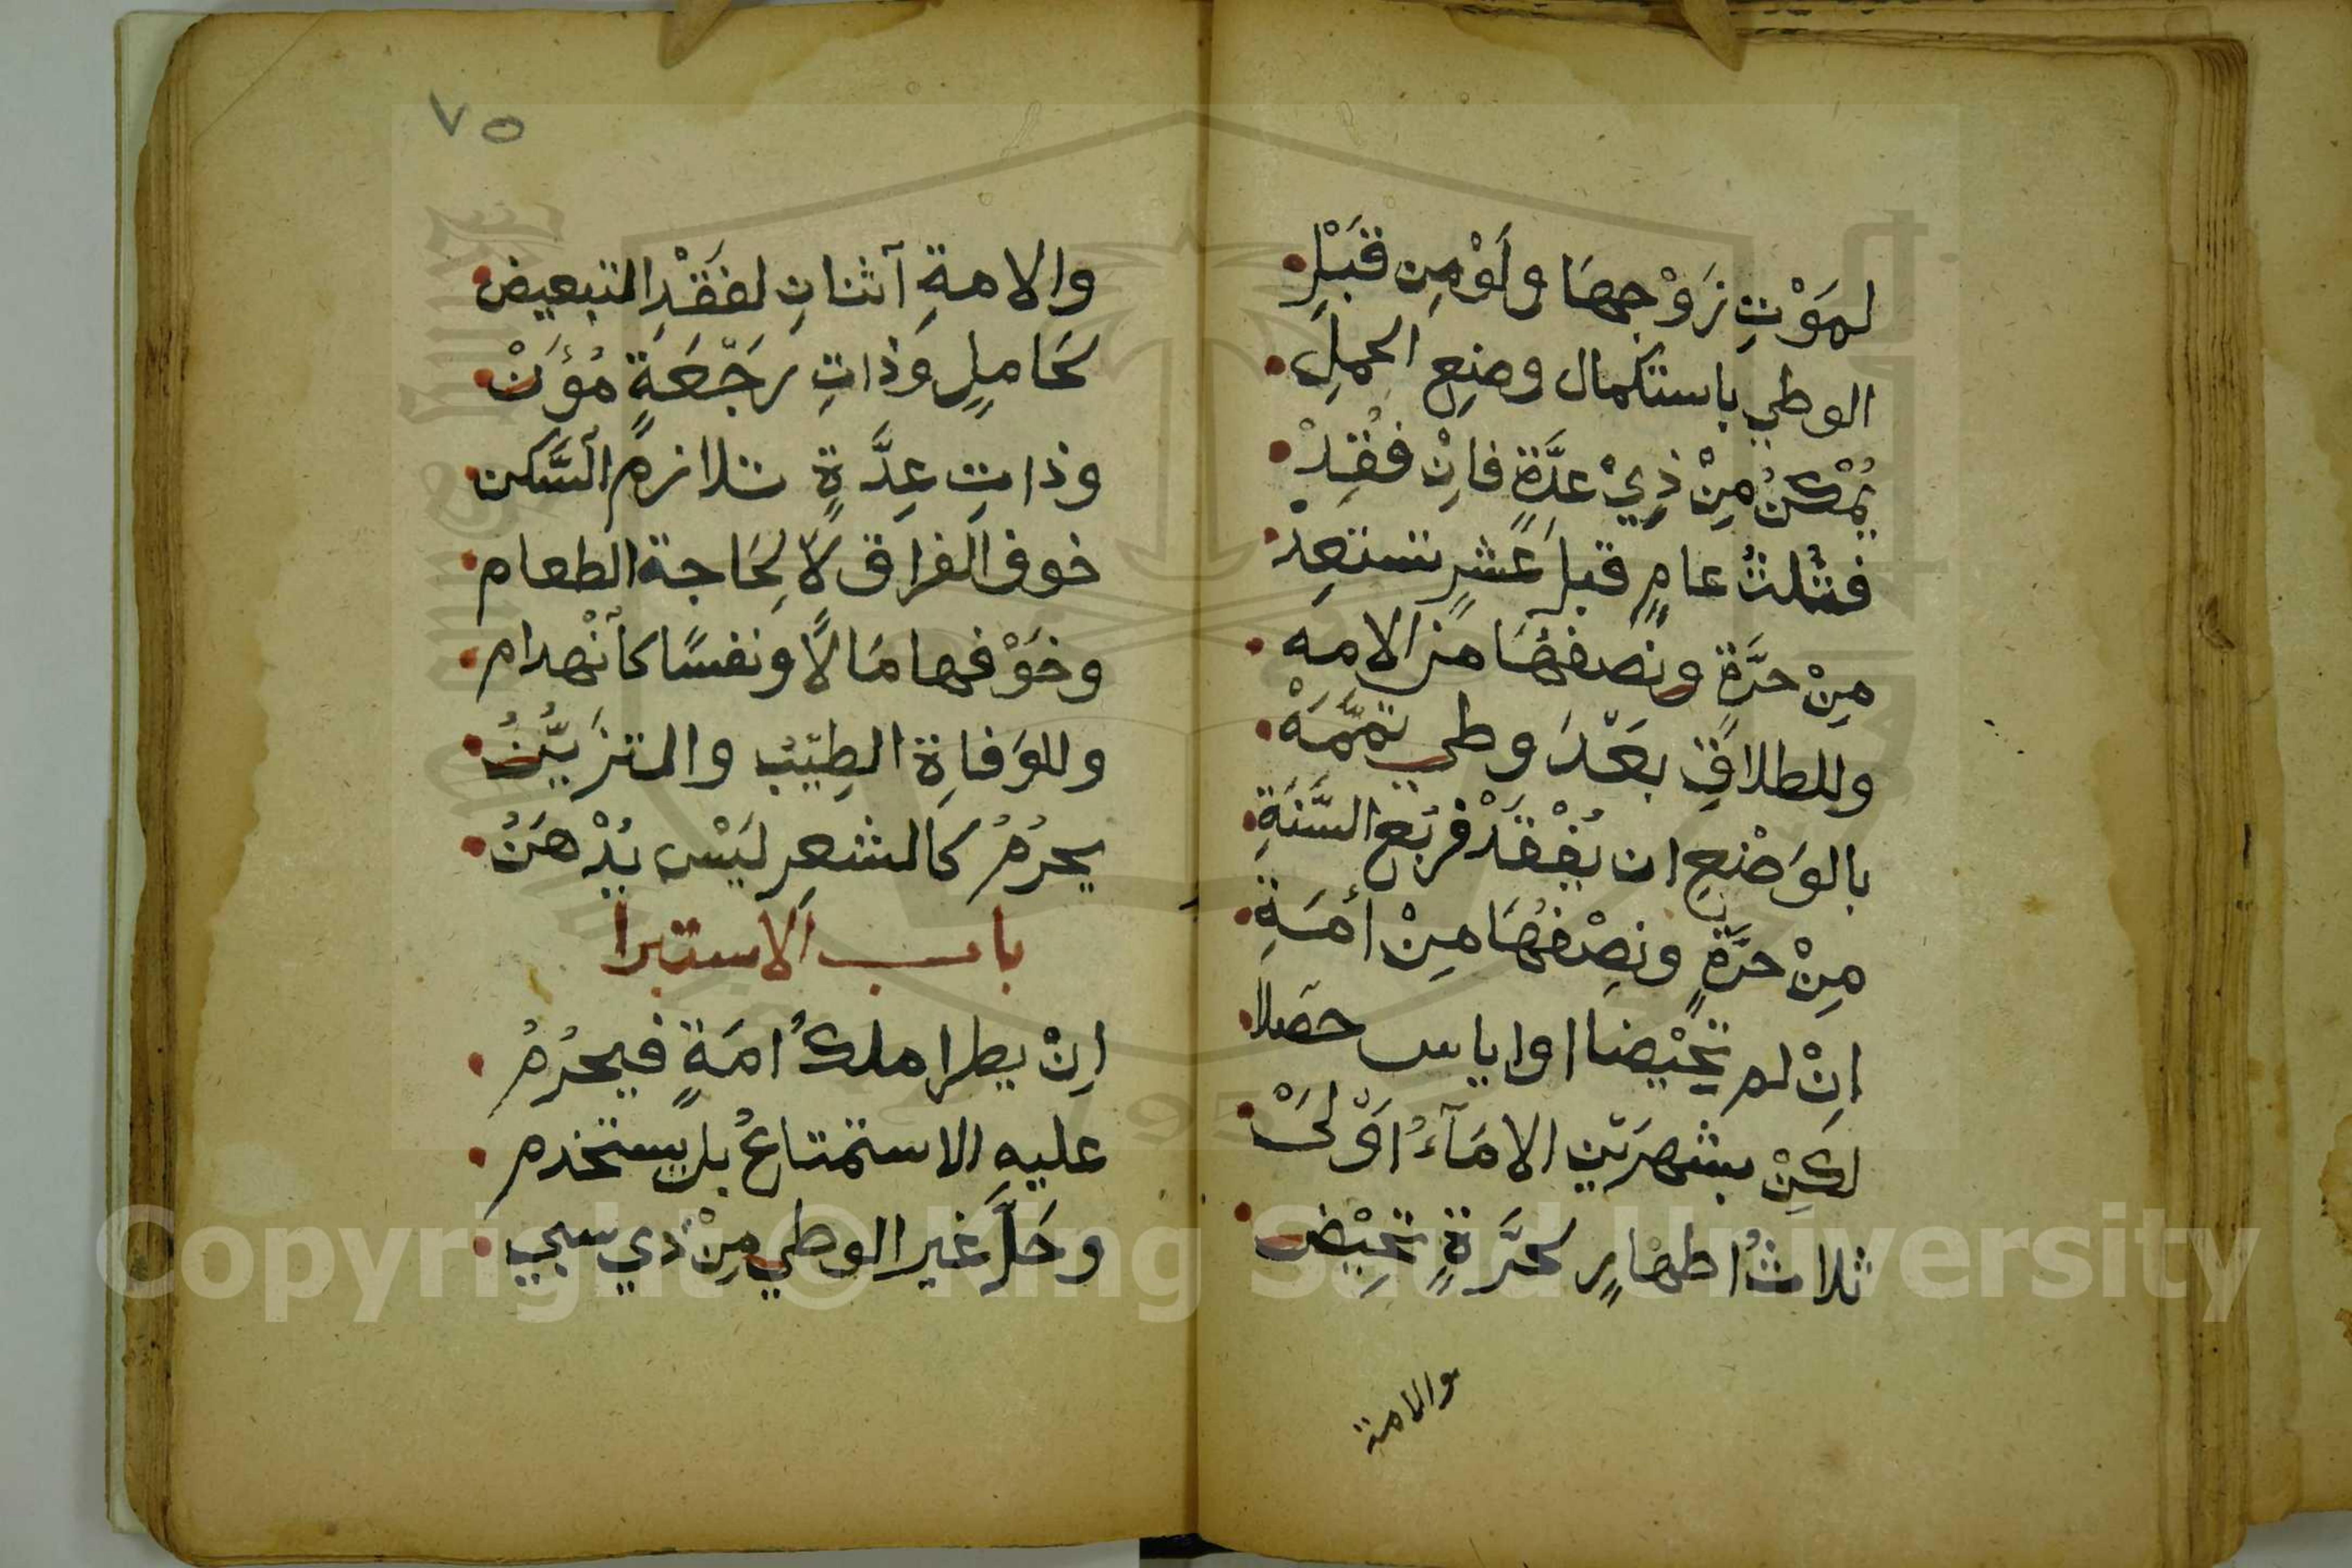 لمَوْتِ زَوْجِهَا وَلَوْ مِن قَبْلِ
الوطي باستكمال وضِعِ الحملِ
يُمْكِنُ مِنْ ذِيْ عِدَّةٍ فاِنْ فُقِدْ
فثُلثُ عامٍ قبلَ عَشرٍ تستعِدْ
مِنْ حرَّةٍ ونصفُهَا من الامه
وللطلاقِ بعَدَ وطي تمَّمَهْ
بالوَضْعِ ان يُفْقَدْ فربُع السَّنَةِ
مِنْ حرَّةٍ ونِصْفُهَا مِنْ أمَةِ
اِنْ لم تَحِيْضا او اياس حصَلا
لكِنْ بشهرَيْنِ الامَآءُ اَوْلَىْ
ثلاثُ اطهارٍ لحرَّةٍ تَحِيْضِ
والامة
٧٥
والامةِ آثنانِ لفَقْدِ التبعيض
لحَاملٍ وَذاتِ رَجْعَةٍ مُؤَنْ
وذاتِ عِدَّةٍ تلازمُ السَّكن
خوف الفراق لا لِحَاجة الطعام
وخَوْفها مَالًا ونفسًا كاَنْهدام
وللوَفاةِ الطِيْبُ والتزَيُّنُ
يحرُمُ كالشعرِ ليَْس يُدْهَنُ
باب الاستبرا
اِنْ يطرا ملكُ امَةٍ فيحرُمُ
عليهِ الاستمتاعُ بل يستخدم
وحَلَّ غير الوطي مِنْ ذي سبي
Copyright © King Saud University